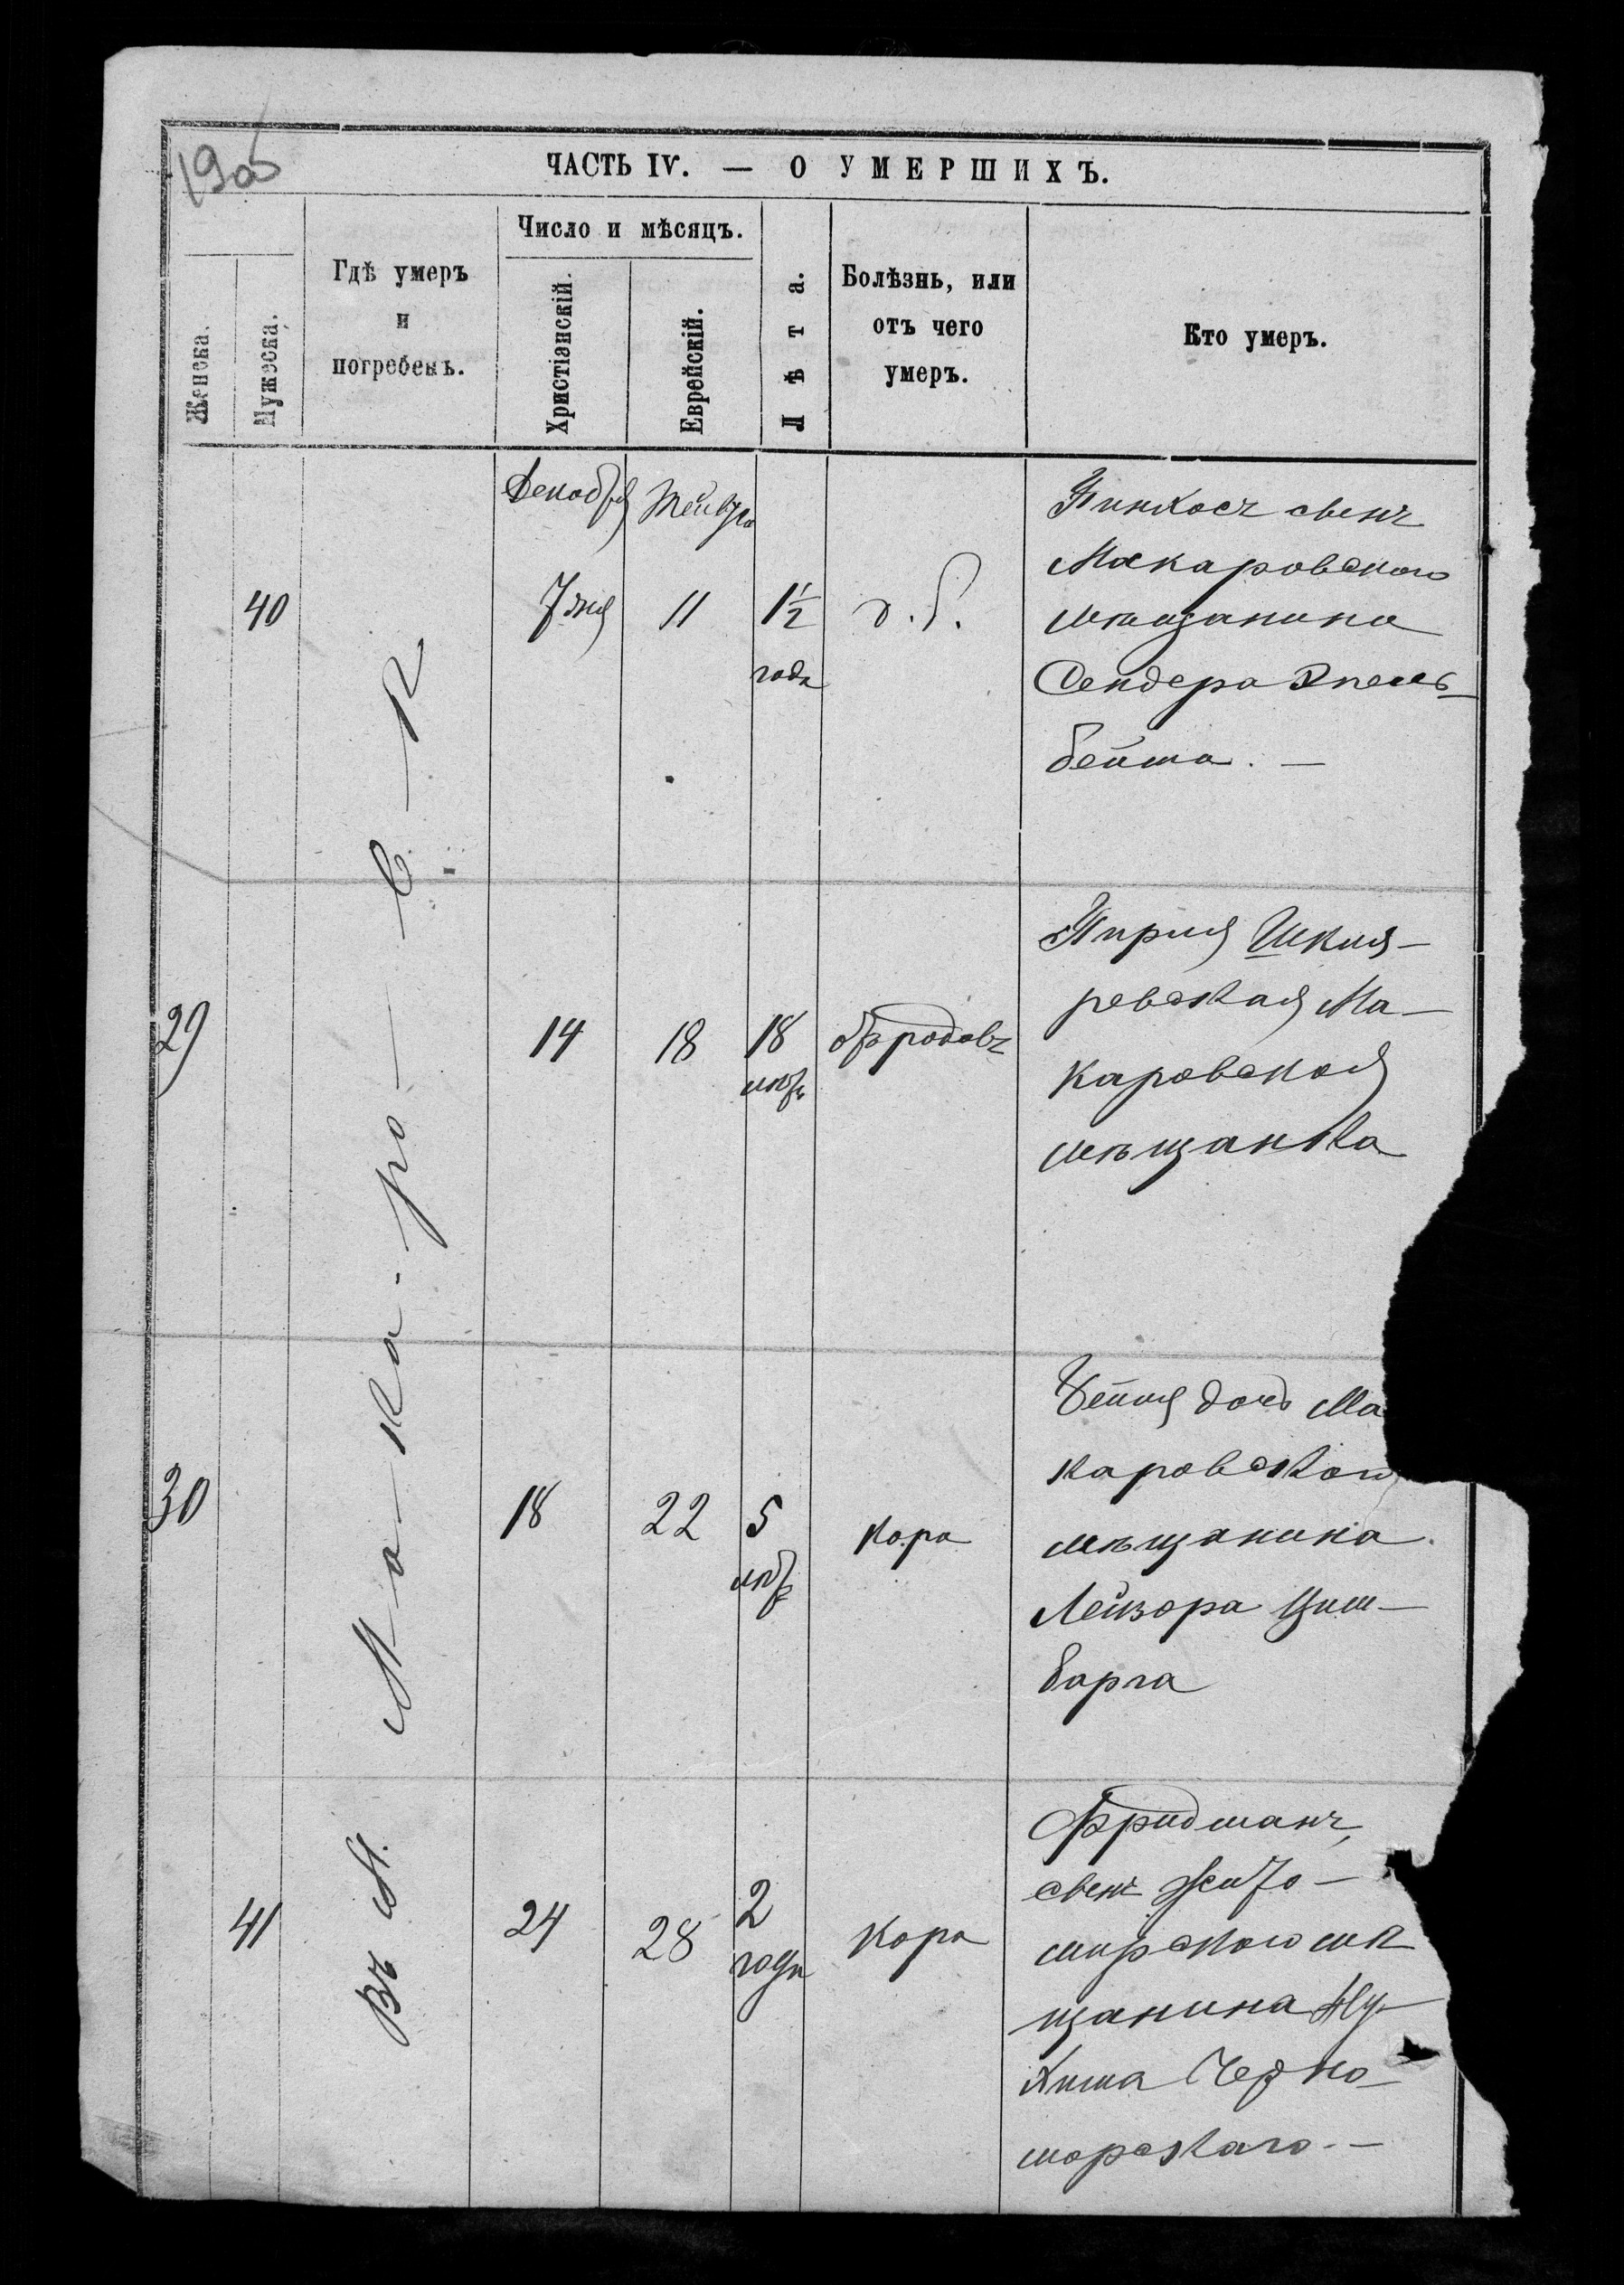 19об
ЧАСТЬ IV. — О УМЕРШИХЪ.
Женска.
Мужеска.
Гдѣ умеръ
и
погребенъ.
Число и мѣсяцъ.
Христіанскій.
Еврейскій.
Лѣта.
Болѣзнь, или
отъ чего
умеръ.
Кто умеръ.
Въ М. Ма-ка-ро-в-ѣ
Декабря
40
7 дня
11
1½
года
Пинхосъ сынъ
Макаровского
мѣщанина
Сендера Эпель-
бейма. —
29
14
18
18
Шкля-
ревская Ма-
каровская
мѣщанка
30
18
22
5
Кора
дочь Ма
каровского
мѣщанина
Лейзора Цим-
барга
41
24
28
2
года
Кора
Фридманъ,
сынъ Жито-
мирского мѣ
щанина Ну-
хима Черно-
морскаго. —